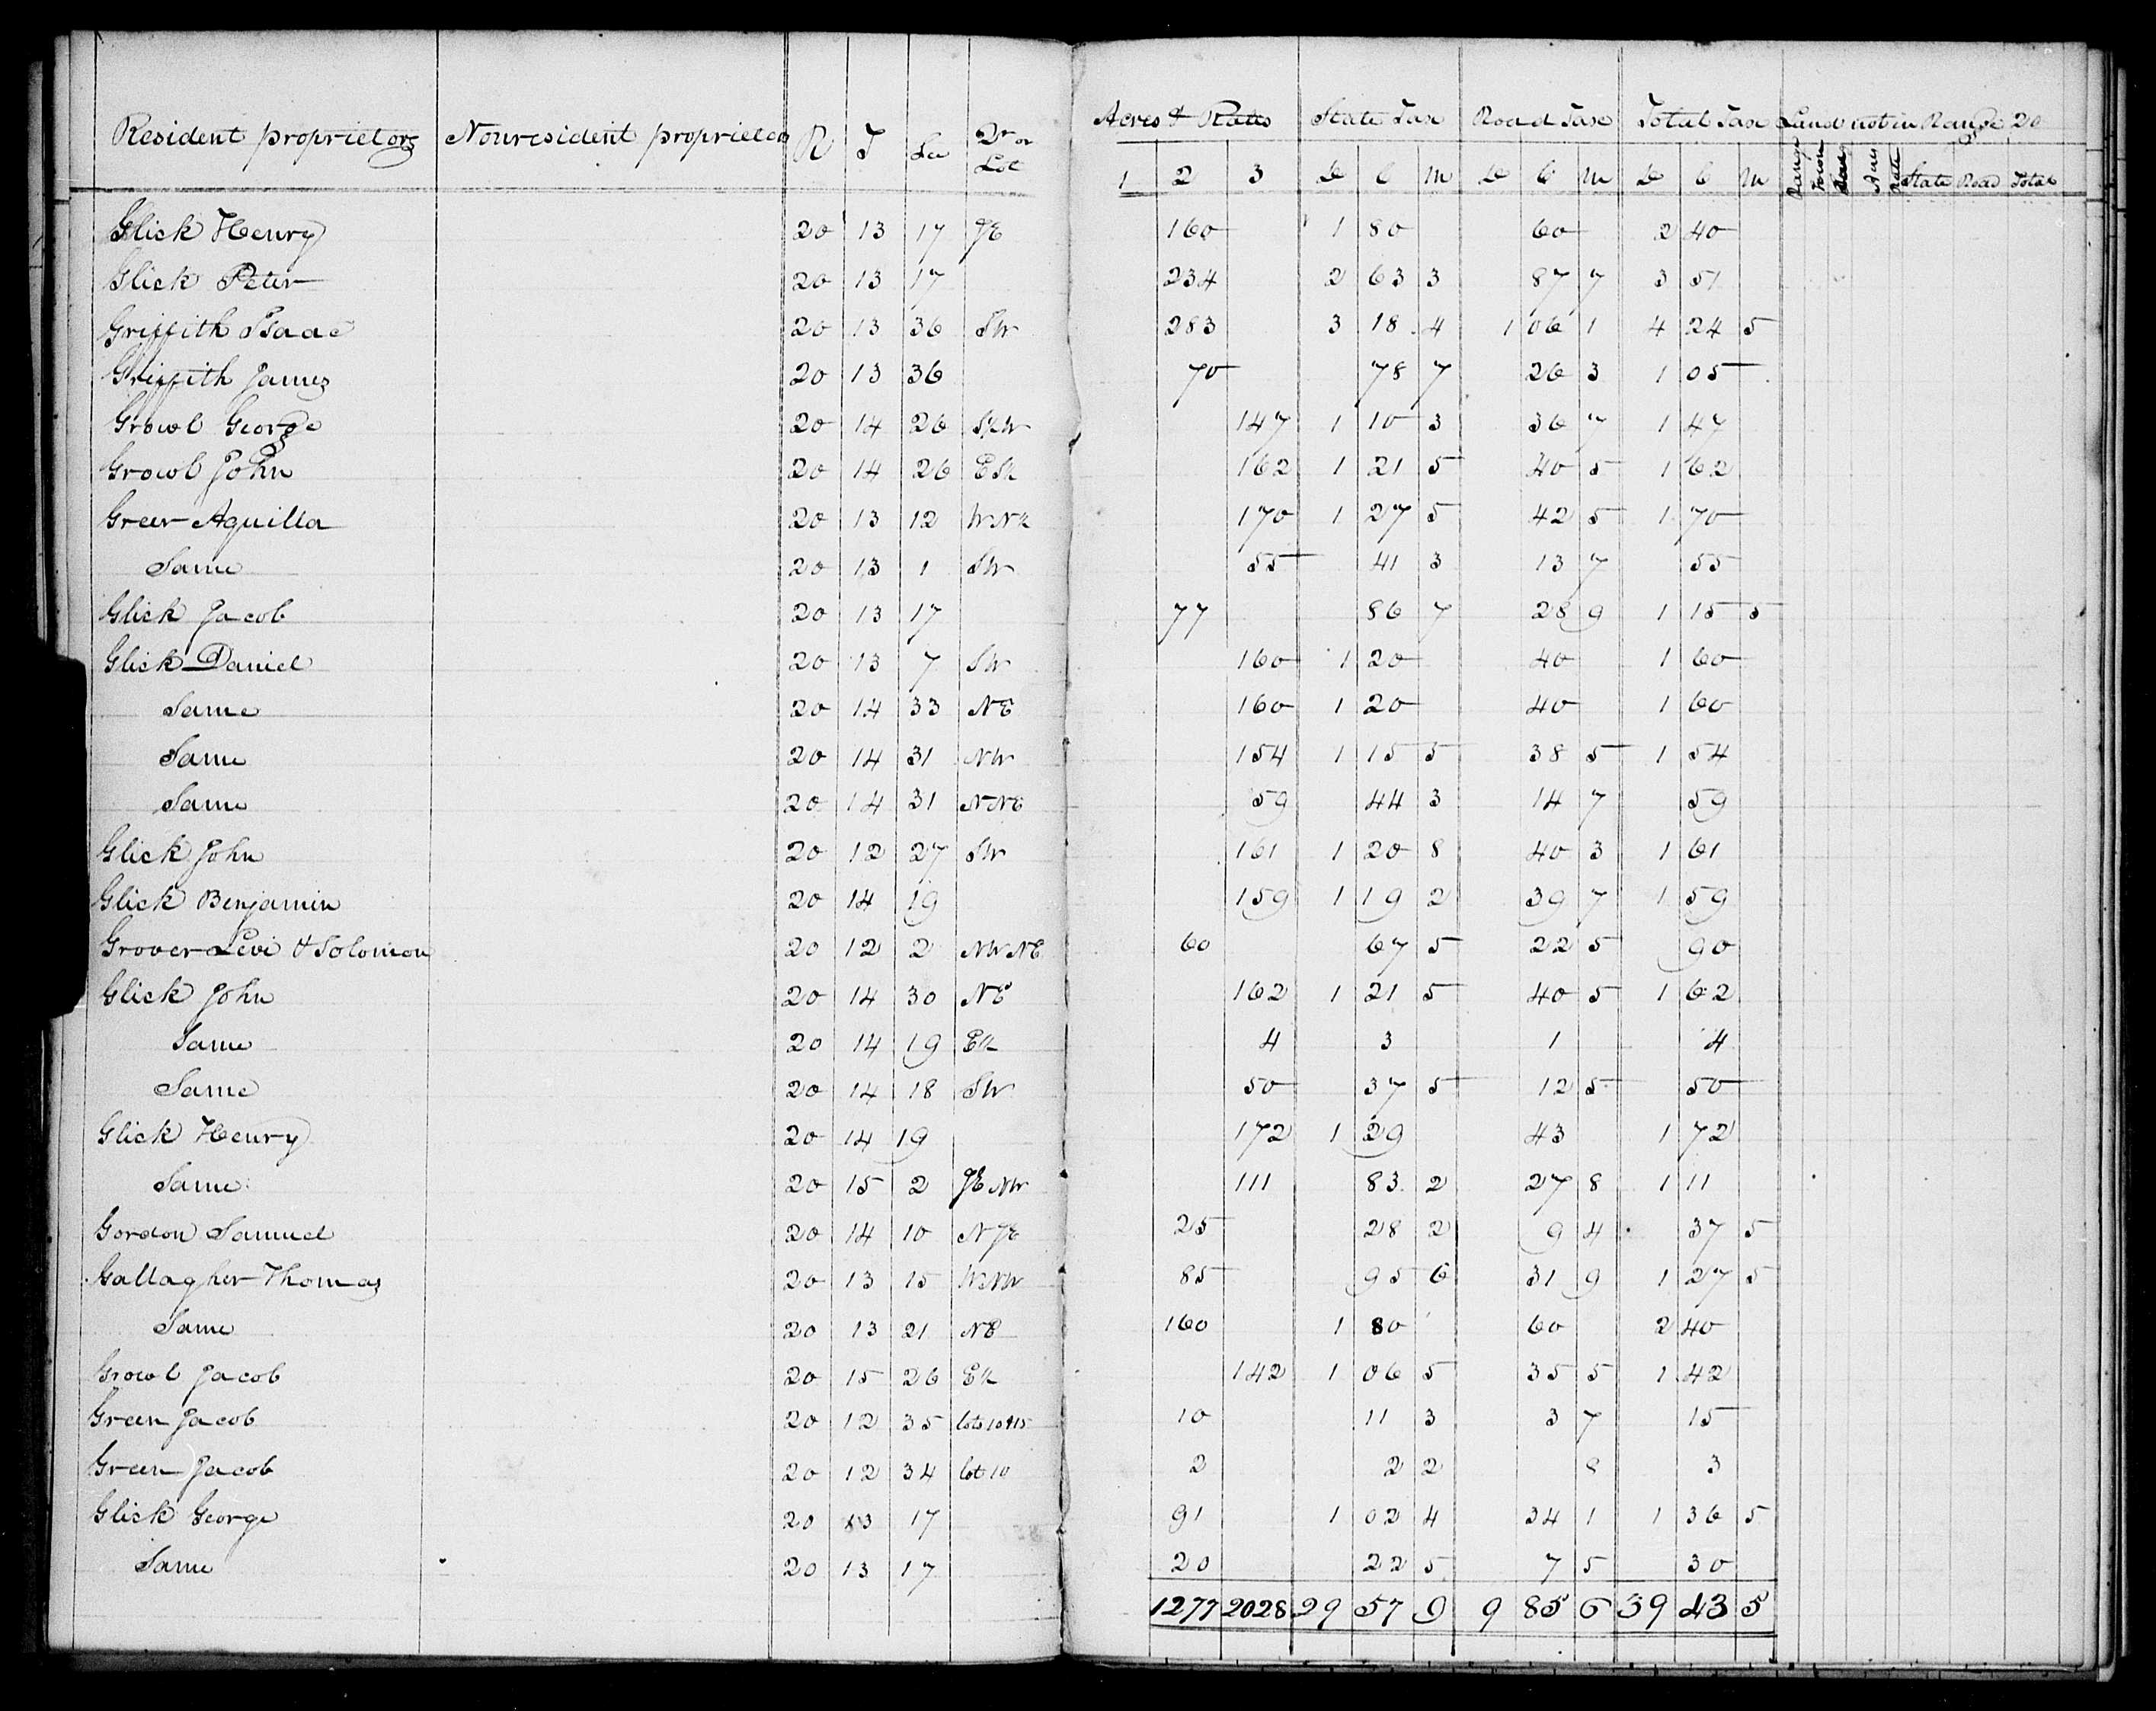 Resident proprietors Nonresident proprietors R T Sec Qr or Lot Acres & Rates State Tax Road Tax Total Tax Land not in Range 20
1 2 3 D C M D C M D C M Range Town Sec Acres Rate State Road Total
Glick Henry 20 13 17 SE 160 1 80 60 2 40
Glick Peter 20 13 17 234 2 63 3 87 7 3 51
Griffith Isaac 20 13 36 SW 283 3 18 4 1 06 1 4 24 5
Griffith James 20 13 36 70 78 7 26 3 1 05
Growl George 20 14 26 S½W 147 1 10 3 36 7 1 47
Growl John 20 14 26 ES½ 162 1 21 5 40 5 1 62
Greer Aquilla 20 13 12 WN½ 170 1 27 5 42 5 1 70
Same 20 13 1 SW 55 41 3 13 7 55
Glick Jacob 20 13 17 77 86 7 28 9 1 15 5
Glick Daniel 20 13 7 SW 160 1 20 40 1 60
Same 20 14 33 NE 160 1 20 40 1 60
Same 20 14 31 NW 154 1 15 5 38 5 1 54
Same 20 14 31 NNE 59 44 3 14 7 59
Glick John 20 12 27 SW 161 1 20 8 40 3 1 61
Glick Benjamin 20 14 19 159 1 19 2 39 7 1 59
Grover Levi & Solomon 20 12 2 NW NE 60 67 5 22 5 90
Glick John 20 14 30 NE 162 1 21 5 40 5 1 62
Same 20 14 19 E½ 4 3 1 4
Same 20 14 18 SW 50 37 5 12 5 50
Glick Henry 20 14 19 172 1 29 43 1 72
Same 20 15 2 SE NW 111 83 2 27 8 1 11
Gordon Samuel 20 14 10 N SE 25 28 2 9 4 37 5
Gallagher Thomas 20 13 15 W½NW 85 95 6 31 9 1 27 5
Same 20 13 21 NE 160 1 80 60 2 40
Growl Jacob 20 15 26 E½ 142 1 06 5 35 5 1 42
Green Jacob 20 12 35 lots 10 & 15 10 11 3 3 7 15
Green Jacob 20 12 34 lot 10 2 2 2 8 3
Glick George 20 13 17 91 1 02 4 34 1 1 36 5
Same 20 13 17 20 22 5 7 5 30
1277 2028 29 57 9 9 85 6 39 43 5